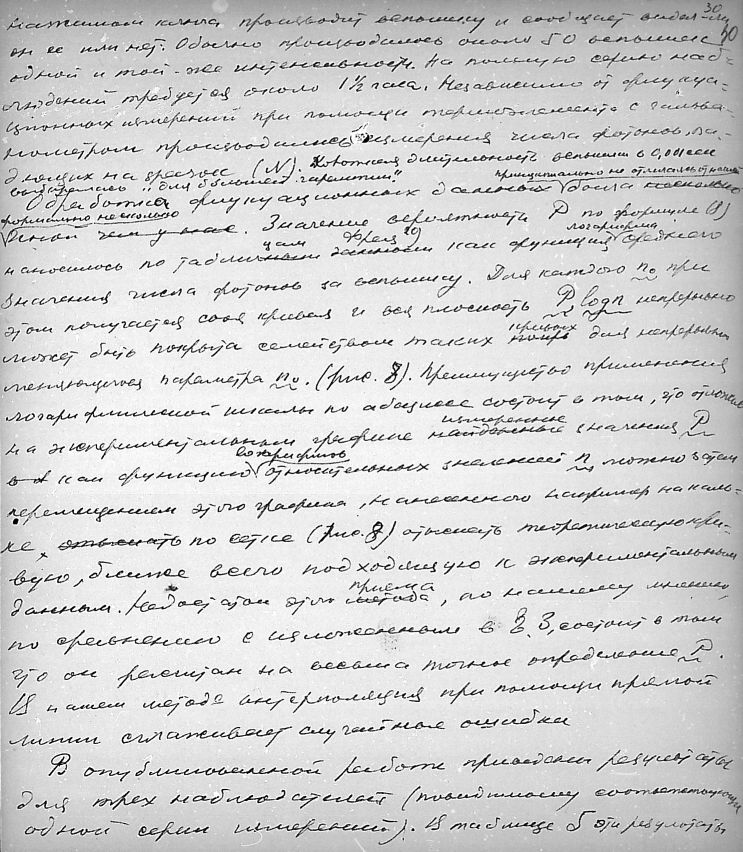 30
30
нажимом ключа производит вспышку и сообщает видел ли
он ее или нет. Обычно производилось около 50 вспышек
одной и той-же интенсивности. На полную серию наб-
людений требуется около 1½ часа. Независимо от флуктуа-
ционных измерений при помощи термоэлемента с гальва-
нометром производились измерения числа фотонов па-
дающих на зрачок (N). длительность вспышки в 0,001 сек
выбиралась "для большей гарантии"
принципиально не отличаясь от нашей
Обработка флуктуационных данных была несколько
формально несколько
иной чем у нас. Значение вероятности P по формуле (8)
цам Фрея 29) логарифма
наносилось по таблич данным как функция среднего
значения числа фотонов за вспышку. Для каждого n₀ при
этом получается своя кривая и вся плоскость P log n непрерывно
кривых
может быть покрыта семейством таких для непрерывно
меняющегося параметра n₀. (рис. 8). Преимущество применения
логарифмической шкалы по абсциссе состоит в том, что отложив
измеренные
на экспериментальном графике найденные значения P
логарифмов
как функцию относительных значений n можно затем
перемещением этого графика, нанесенного например на каль-
ке, отыскать по сетке (рис. 8) отыскать теоретическую кри-
вую, ближе всего подходящую к экспериментальным
приема
данным. Недостаток этого метода, по нашему мнению,
по сравнению с изложенным в § 3, состоит в том
что он рассчитан на весьма точное определение P.
В нашем методе интерполяция при помощи прямой
линии сглаживает случайные ошибки
В опубликованной работе приведены результаты
для трех наблюдателей (повидимому соответствующие
одной серии измерений). В таблице 5 эти результаты